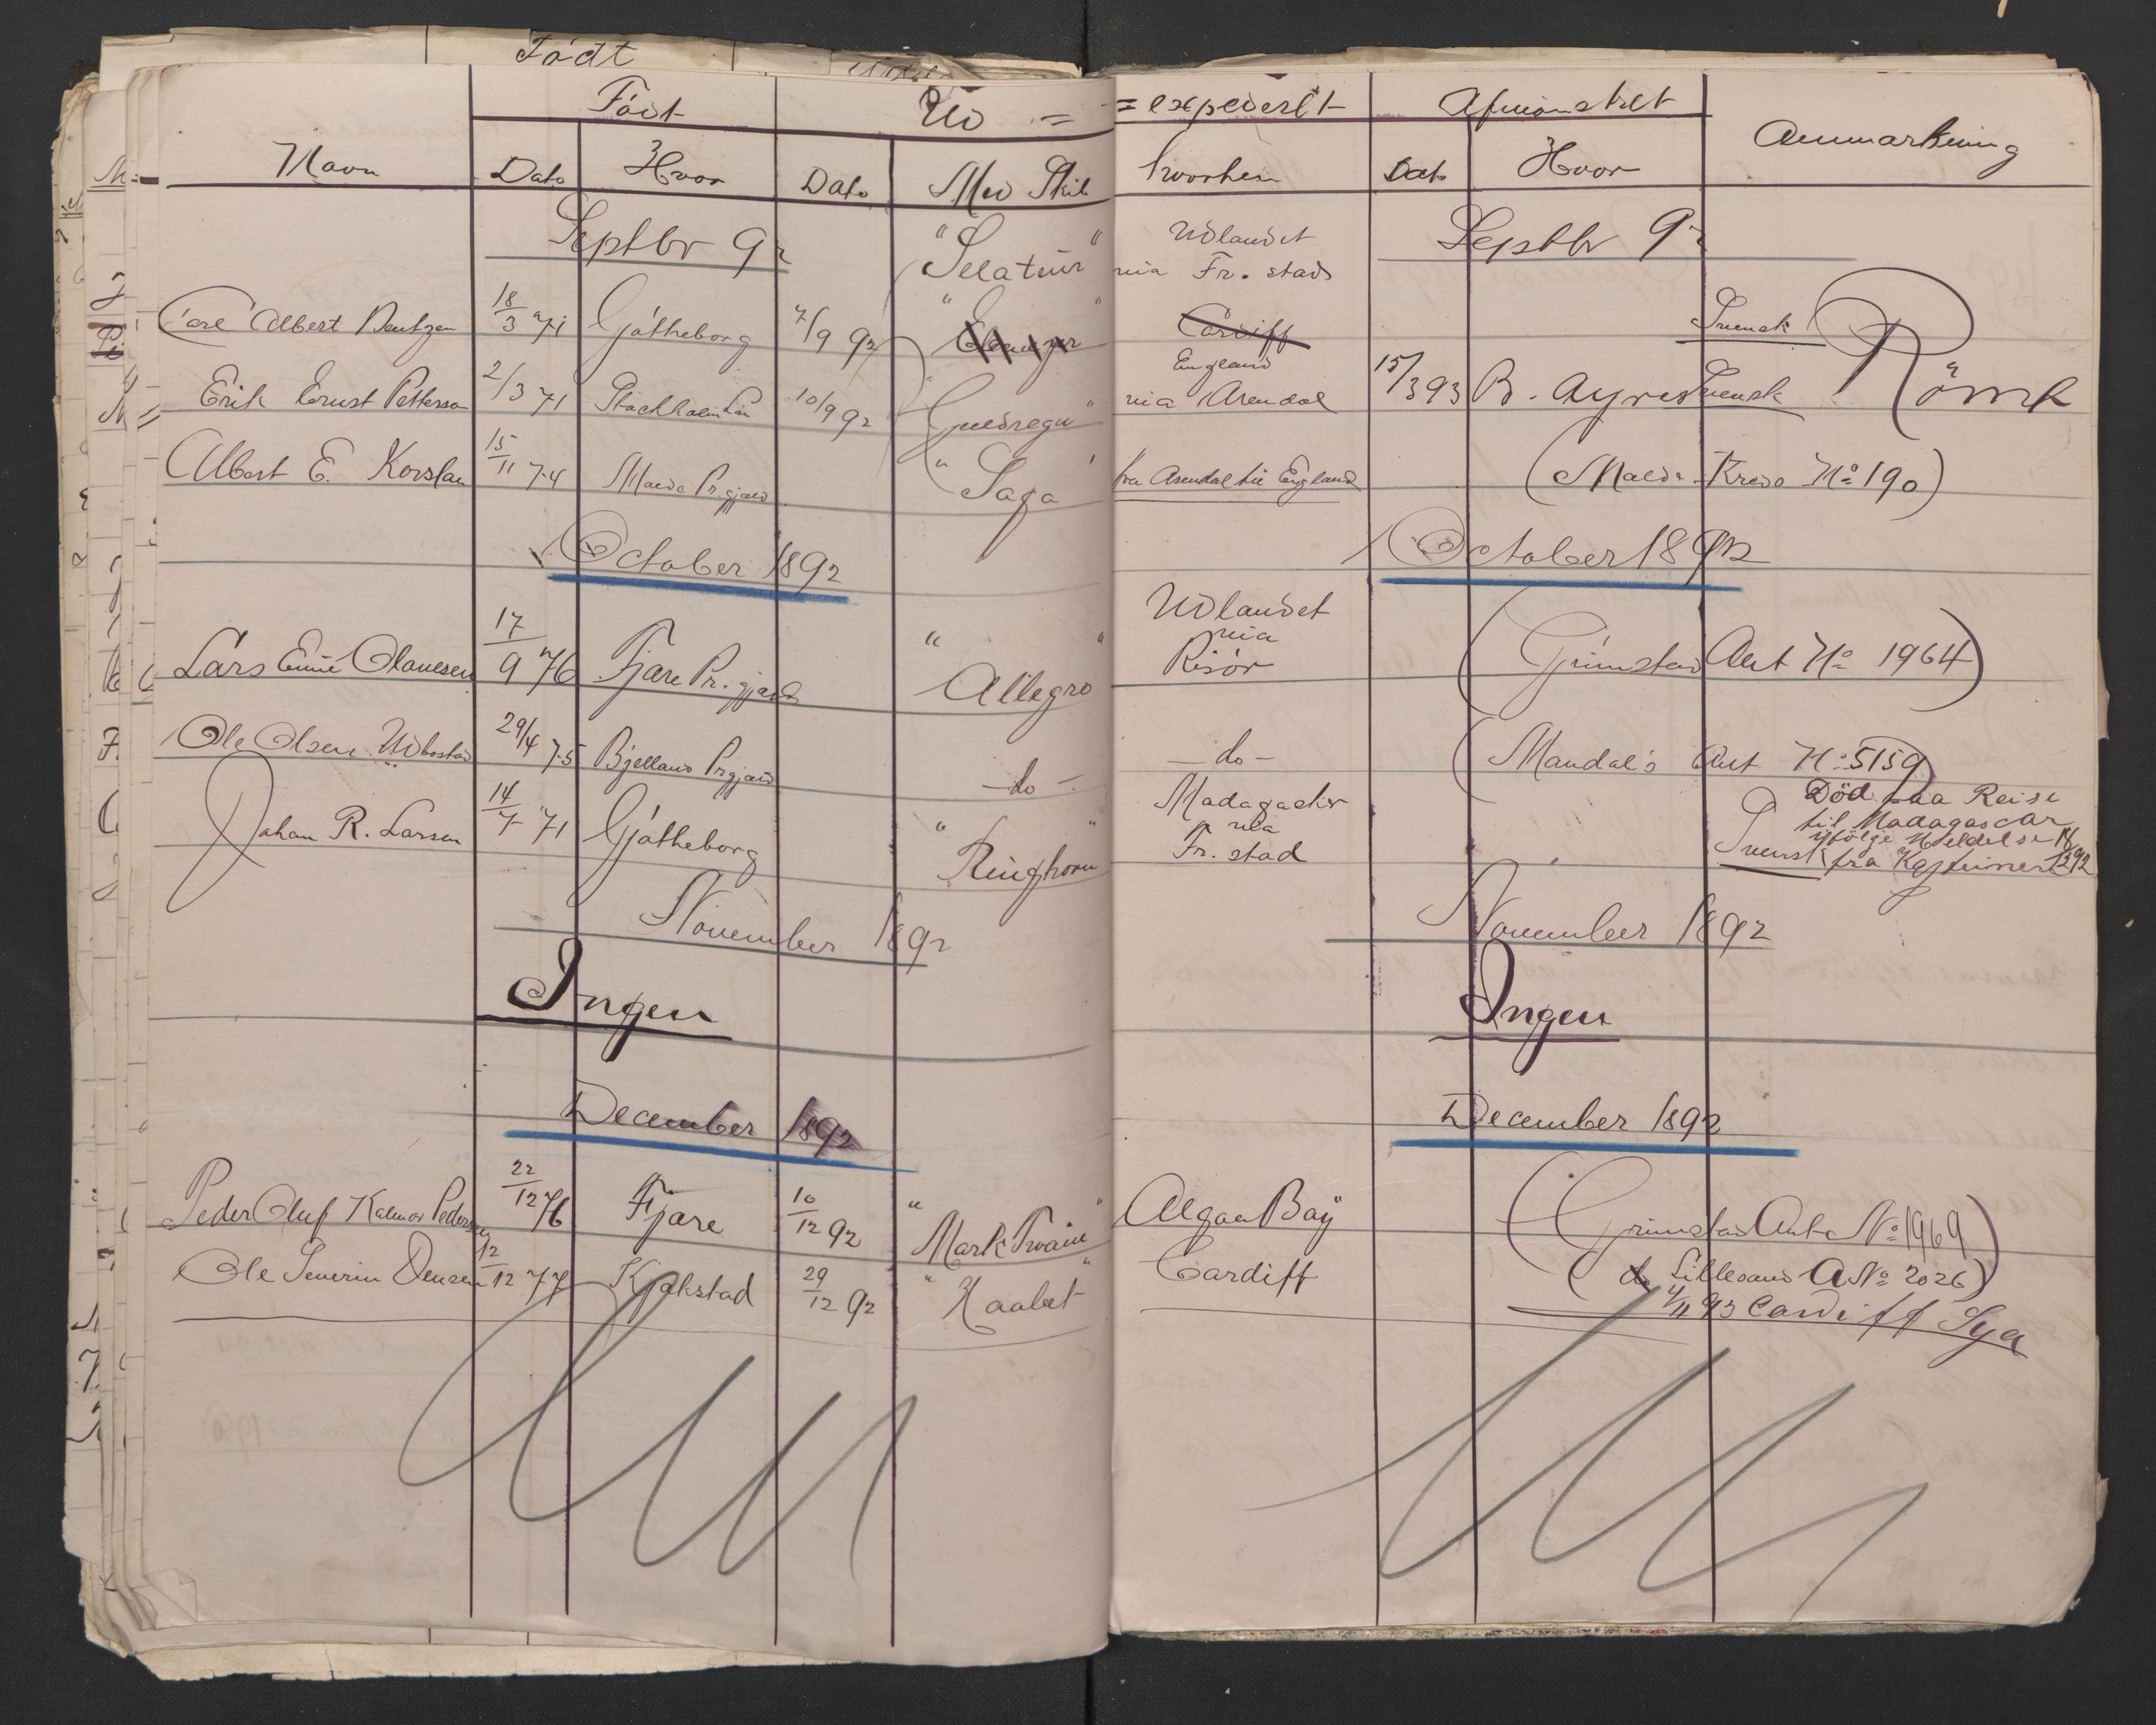 Födt
Födt Ud =
Navn Dato Hvor Dato Med Skib
Septbr 92 "Selatan"
Carl Albert Bentzen 18/3 71 Götheborg 7/9 92 "
Erik Ernst Petterson 2/3 71 Stockholm Län 10/9 92
Albert E. Korslan 15/11 74 Prgjæld "Saga"
October 1892
Lars Emil Olausen 17/9 76 Fjære Pr.gjæld "Allegro"
Ole Olsen 29/4 75 Bjelland Prgjæld - do -
Johan R. Larsen 14/7 71 Götheborg "Ringhorn"
November 1892
Ingen
December 1892
Peder Oluf Kalmar Pedersen 22/12 76 Fjære 10/12 92 "Mark Twain"
Ole Severin Jensen 12/12 77 Kjøkstad 29/12 92 "Haabet"
= expederet Afmönstret Anmærkning
hvorhen Dato Hvor
Udlandet Septbr 92
via Fr. stad
Cardiff Svensk Römt
England
via Arendal 15/3 93 B. Ayres Svensk
fra Arendal til England (Kreds No 190)
October 1892
Udlandet
via
Risör (Grimstad Ant No 1964)
- do - (Mandal's Ant No 5159)
Madagaskr Död paa Reise
via til Madagascar
Fr. stad ifölge Meldelse
Svensk fra Kapteinen
November 1892
Ingen
December 1892
Algoa Bay (Grimstad Ant. No 1969)
Cardiff (do Lillesand A No 2026)
4/11 93 Cardiff Sya